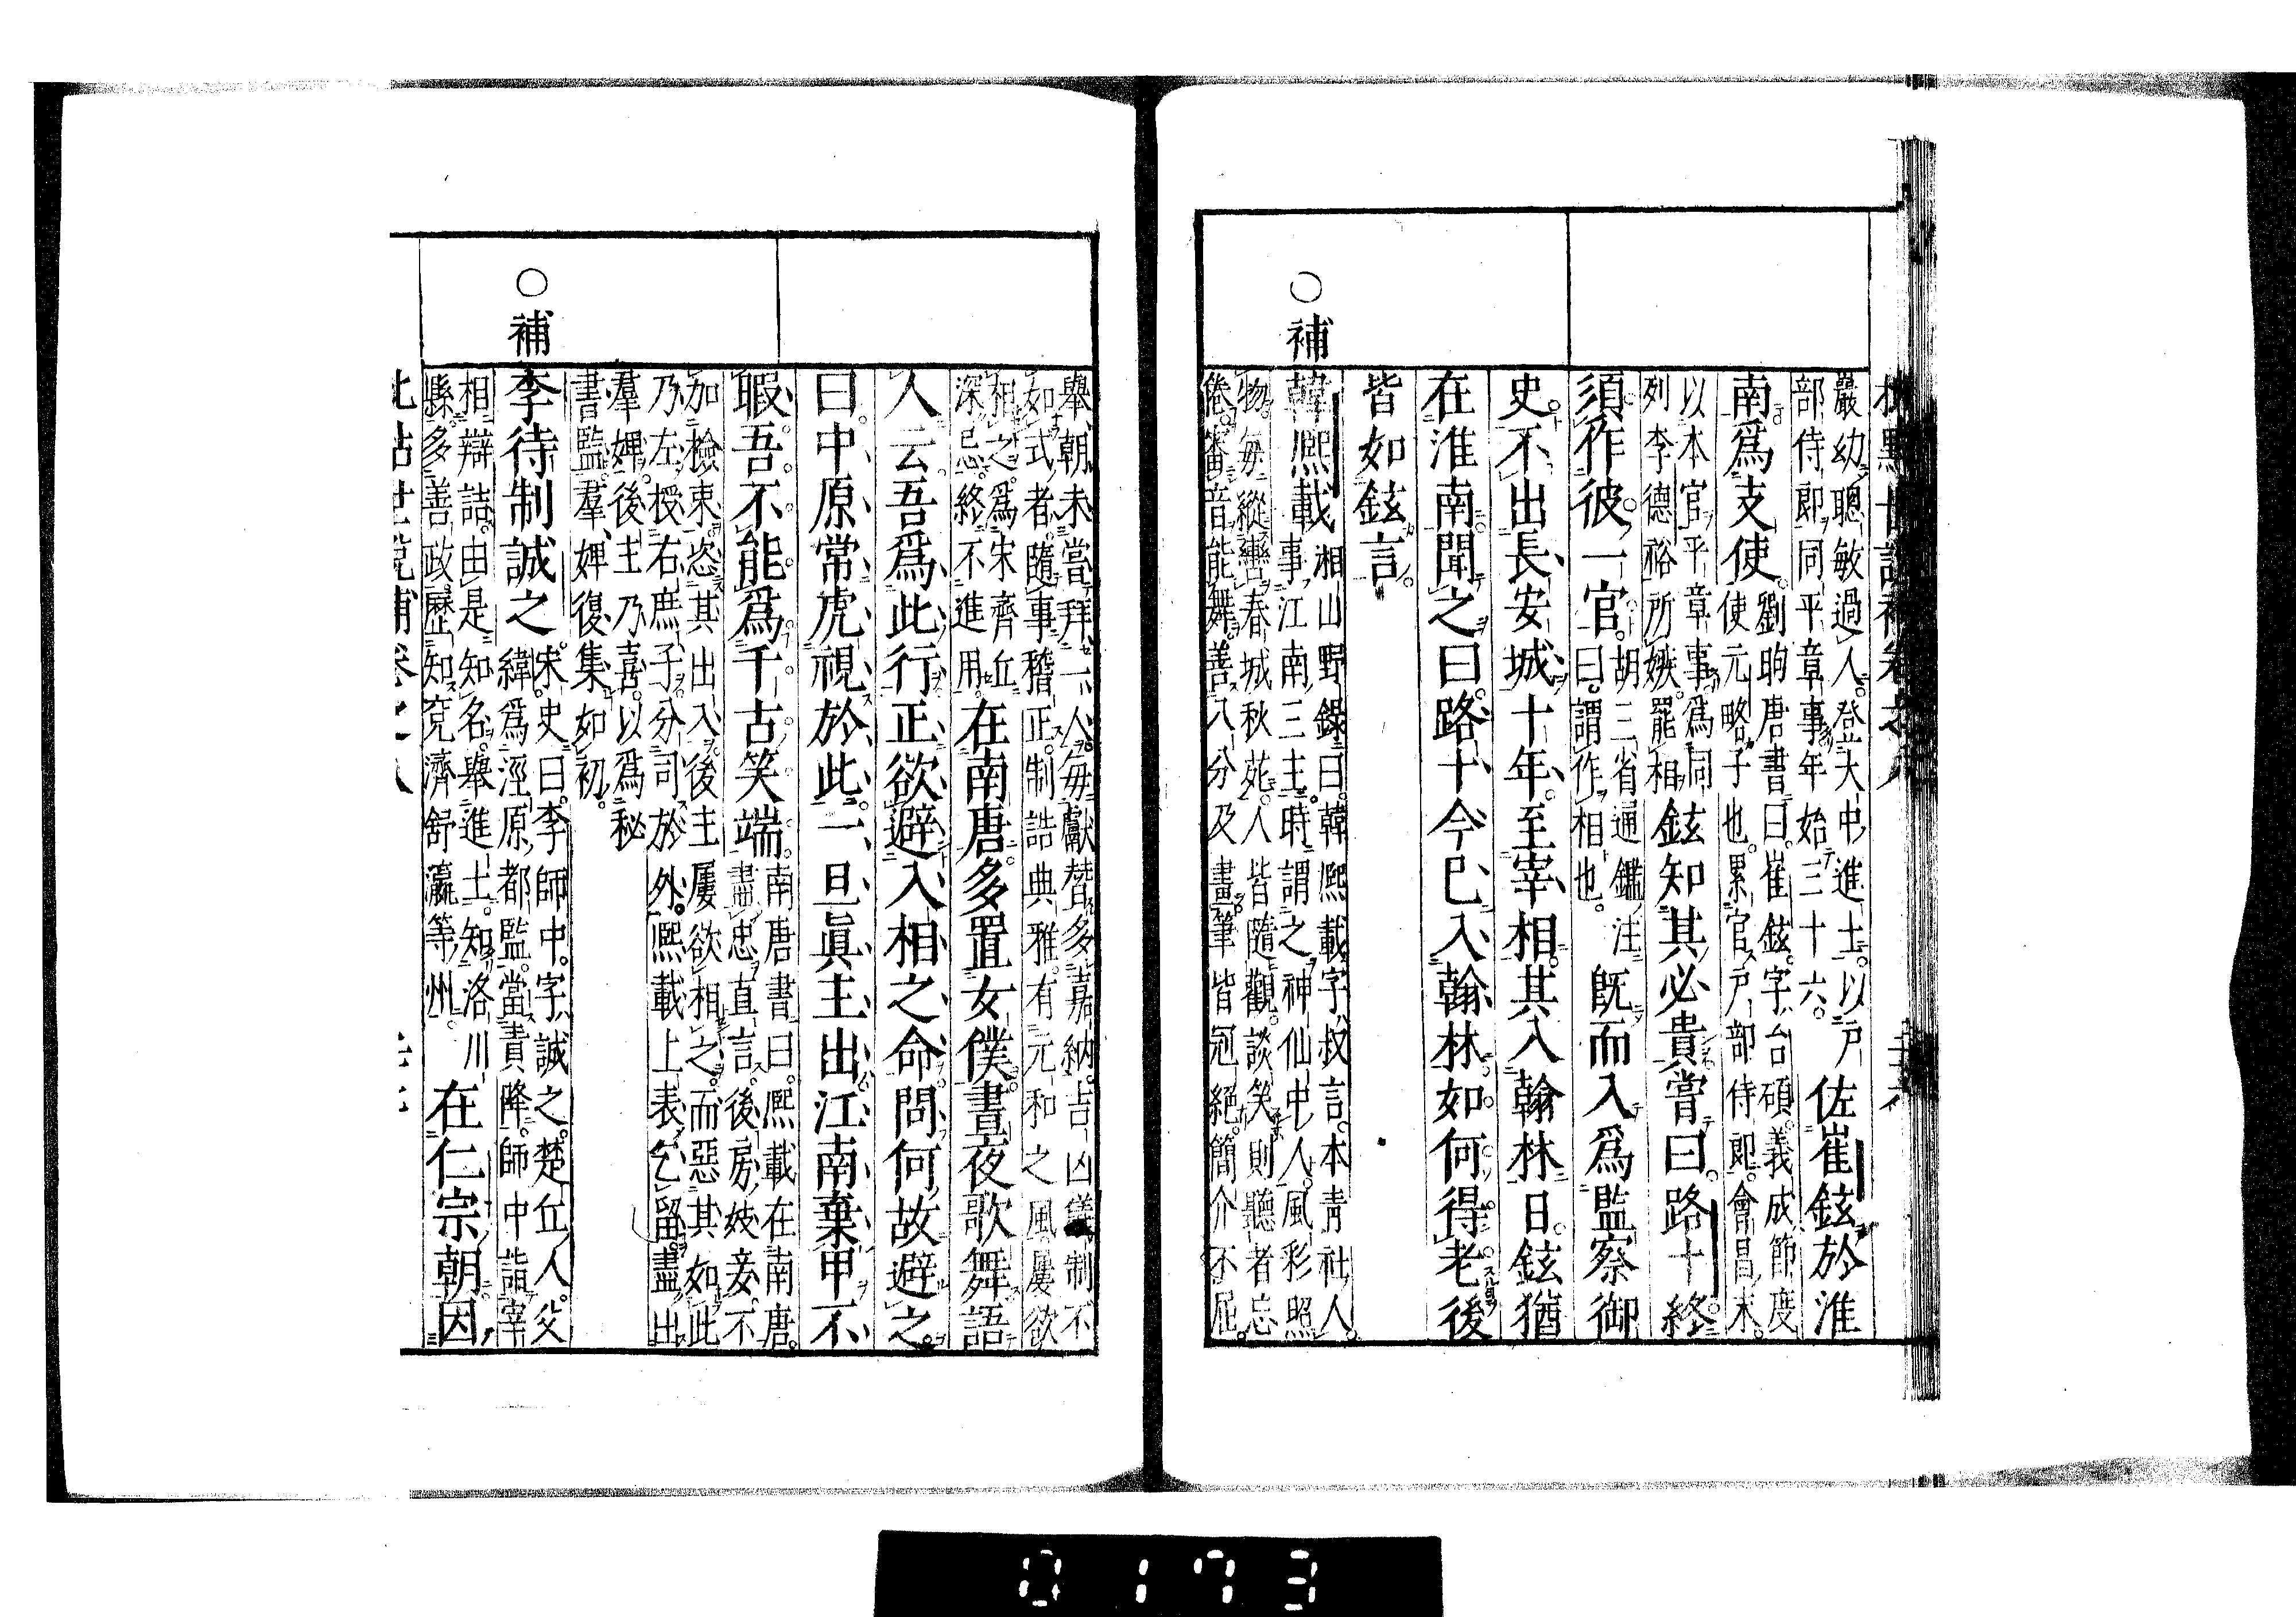 巖幼聰敏過人。登大中進士。以戸
部侍郎同平章事。年始三十六。
佐崔鉉於淮
南爲支使。
劉昫唐書曰。崔鉉。字台碩。義成節度
使元略子也。累官戸部侍郎。會昌末。
以本官平章事。爲同
列李德裕所嫉。罷相。
鉉知其必貴。嘗曰。路十終
須作彼一官。
胡三省通鑑注
曰。謂作相也。
既而入爲監察御
史。不出長安城。十年。至宰相。其入翰林日。鉉猶
在淮南。聞之曰。路十今已入翰林。如何得老。後
皆如鉉言。
○補
韓熙載
湘山野録曰。韓熙載。字叔言。本青社人。
事江南三主。時謂之神仙中人。風彩照
物。毎縱轡春城秋苑。人皆隨觀。談笑則聽者忘
倦。審音能舞。善八分及畫。筆皆冠絶。簡介不屈。
舉朝未嘗拜一人。毎獻替多嘉納。吉凶儀制不
如式者。隨事稽正。制誥典雅。有元和之風。屢欲
相之。爲宋齊丘
深忌。終不進用。
在南唐。多置女僕。晝夜歌舞。語
人云。吾爲此行。正欲避入相之命。問何故避之。
曰。中原常虎視於此。一旦眞主出。江南棄甲不
暇。吾不能爲千古笑端。
南唐書曰。熙載在南唐。
盡忠直言。後房妓妾。不
加檢束。恣其出入。後主屢欲相之。而惡其如此。
乃左授右庶子。分司於外。熙載上表乞留。盡出
羣婢。後主乃喜。以爲秘
書監。羣婢復集如初。
○補
李待制誠之。
宋史曰。李師中。字誠之。楚丘人。父
緯爲涇原都監。當責降。師中詣宰
相辯詰。由是知名。舉進士。知洛川
縣。多善政。歷知兗濟舒瀛等州。
在仁宗朝。因